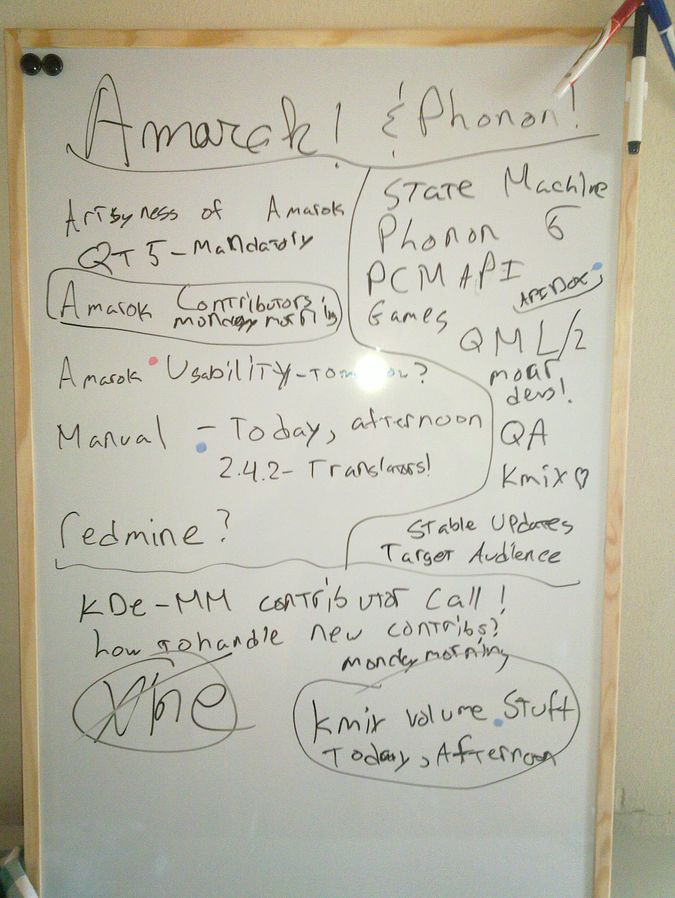 Amarok! & Phonon!
Artsyness of Amarok
QT 5 - Mandatory
Amarok Contributors
monday morning
Amarok Usability - Tomorrow?
Manual - Today, afternoon
2.4.2 - Translators!
redmine?
State Machine
Phonon 6
PCM API
APIDOX
Games
QML/2
moar
devs!
QA
Kmix ♡
Stable Updates
Target Audience
KDe-MM contributor Call!
how to handle new contribs?
monday morning
kmix volume Stuff
Today, Afternoon